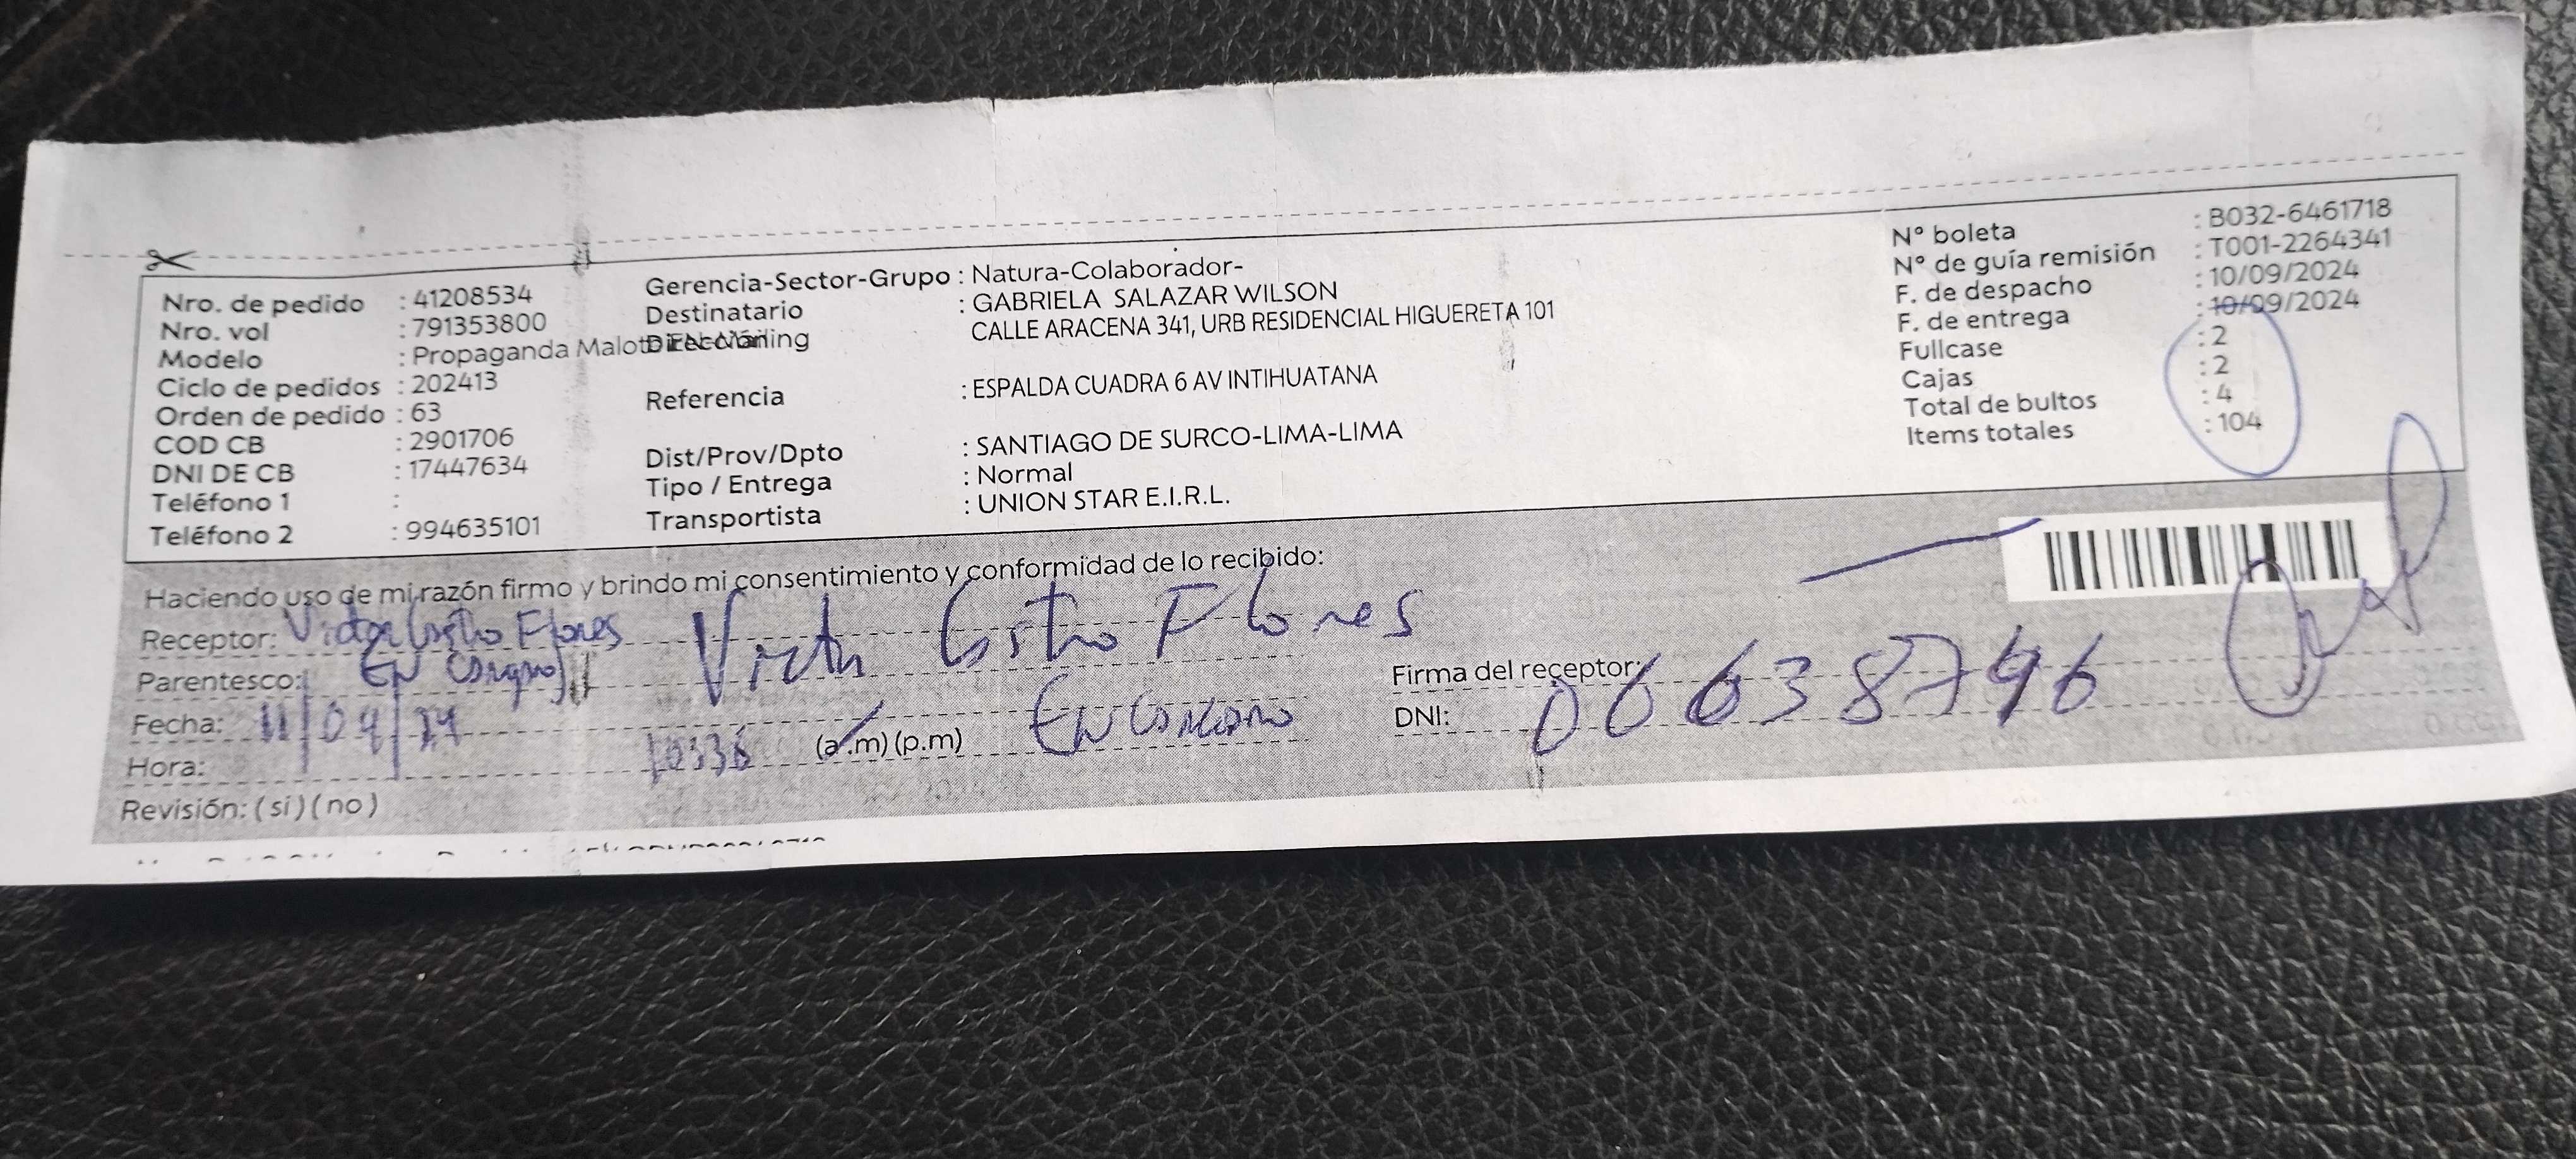 Nro. de pedido : 41208534
Nro. vol : 791353800
Modelo : Propaganda Maloto EN-Mailing
Ciclo de pedidos : 202413
Orden de pedido : 63
COD CB : 2901706
DNI DE CB : 17447634
Teléfono 1 :
Teléfono 2 : 994635101
Gerencia-Sector-Grupo : Natura-Colaborador-
Destinatario : GABRIELA SALAZAR WILSON
Dirección CALLE ARACENA 341, URB RESIDENCIAL HIGUERETA 101
Referencia : ESPALDA CUADRA 6 AV INTIHUATANA
Dist/Prov/Dpto : SANTIAGO DE SURCO-LIMA-LIMA
Tipo / Entrega : Normal
Transportista : UNION STAR E.I.R.L.
N° boleta : B032-6461718
N° de guía remisión : T001-2264341
F. de despacho : 10/09/2024
F. de entrega : 10/09/2024
Fullcase : 2
Cajas : 2
Total de bultos : 4
Items totales : 104
Haciendo uso de mi razón firmo y brindo mi consentimiento y conformidad de lo recibido:
Receptor: Victor Castro Flores Victor Castro Flores
Parentesco:
Fecha: 11/09/24
Hora: (a.m) (p.m)
Revisión: (si) (no)
Firma del receptor:
DNI: 06638796